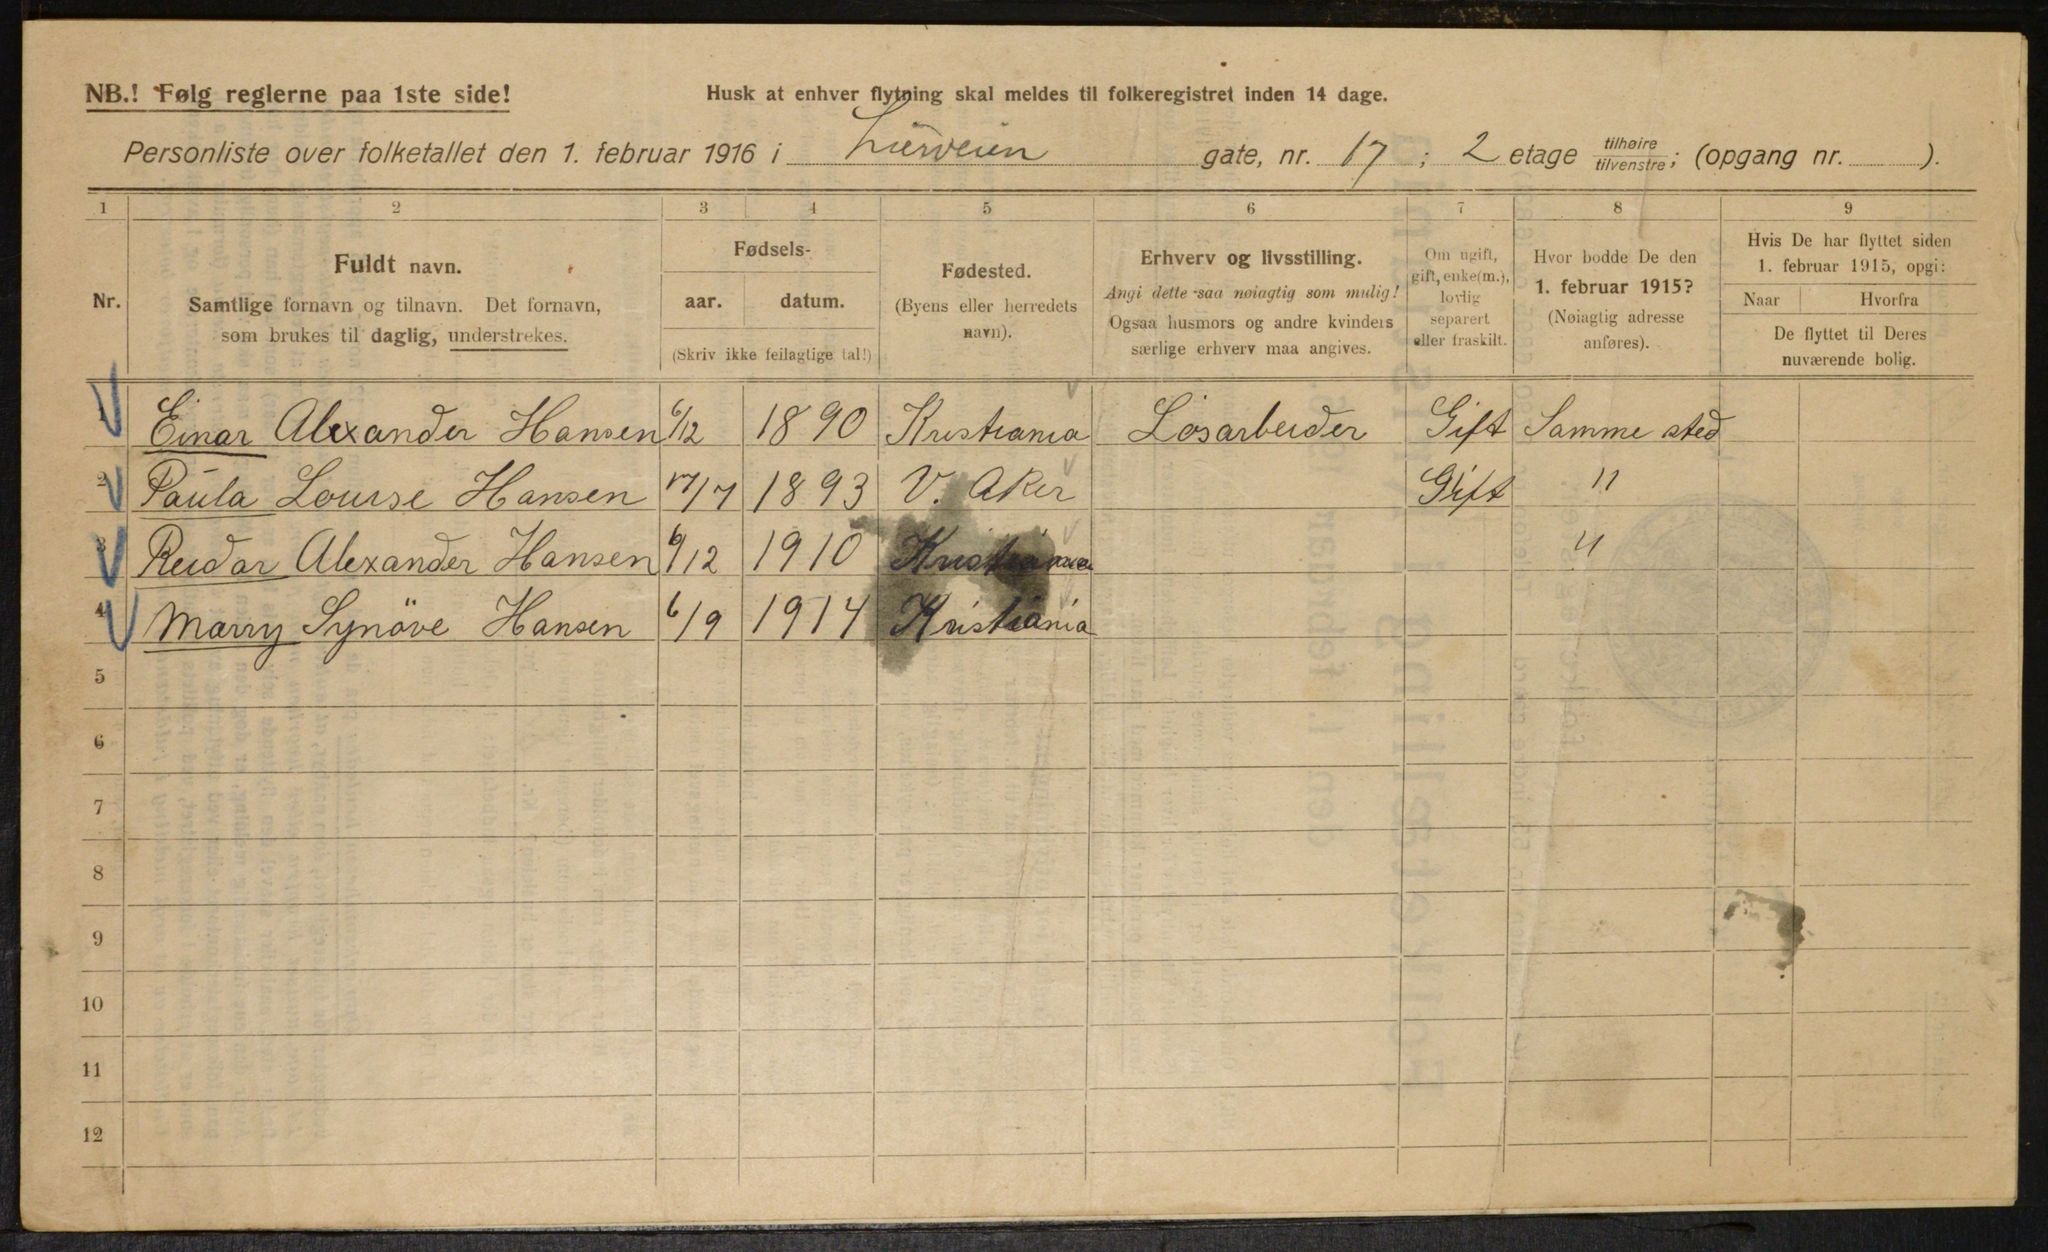 NB.! Følg reglerne paa 1ste side! Husk at enhver flytning skal meldes til folkeregistret inden 14 dage.
Personliste over folketallet den 1. februar 1916 i Lierveien gate, nr. 17; 2 etage tilhøire/tilvenstre; (opgang nr. ).
1 2 3 4 5 6 7 8 9
Nr.
Fuldt navn.
Samtlige fornavn og tilnavn. Det fornavn,
som brukes til daglig, understrekes.
Fødsels-
aar. datum.
(Skriv ikke feilagtige tal!)
Fødested.
(Byens eller herredets
navn).
Erhverv og livsstilling.
Angi dette saa nøiagtig som mulig!
Ogsaa husmors og andre kvinders
særlige erhverv maa angives.
Om ugift,
gift, enke(m.),
lovlig
separert
eller fraskilt.
Hvor bodde De den
1. februar 1915?
(Nøiagtig adresse
anføres).
Hvis De har flyttet siden
1. februar 1915, opgi:
Naar Hvorfra
De flyttet til Deres
nuværende bolig.
1 Einar Alexander Hansen 6/12 1890 Kristiania Løsarbeider Gift Samme sted
2 Paula Lourse Hansen 17/7 1893 V. Aker Gift "
3 Reidar Alexander Hansen 6/12 1910 Kristiania "
4 Marry Synöve Hansen 6/9 1914 Kristiania
5
6
7
8
9
10
11
12